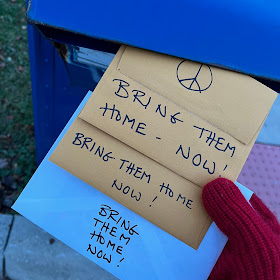 BRING THEM
HOME - NOW!
BRING THEM HOME
NOW!
BRING
THEM
HOME
NOW!